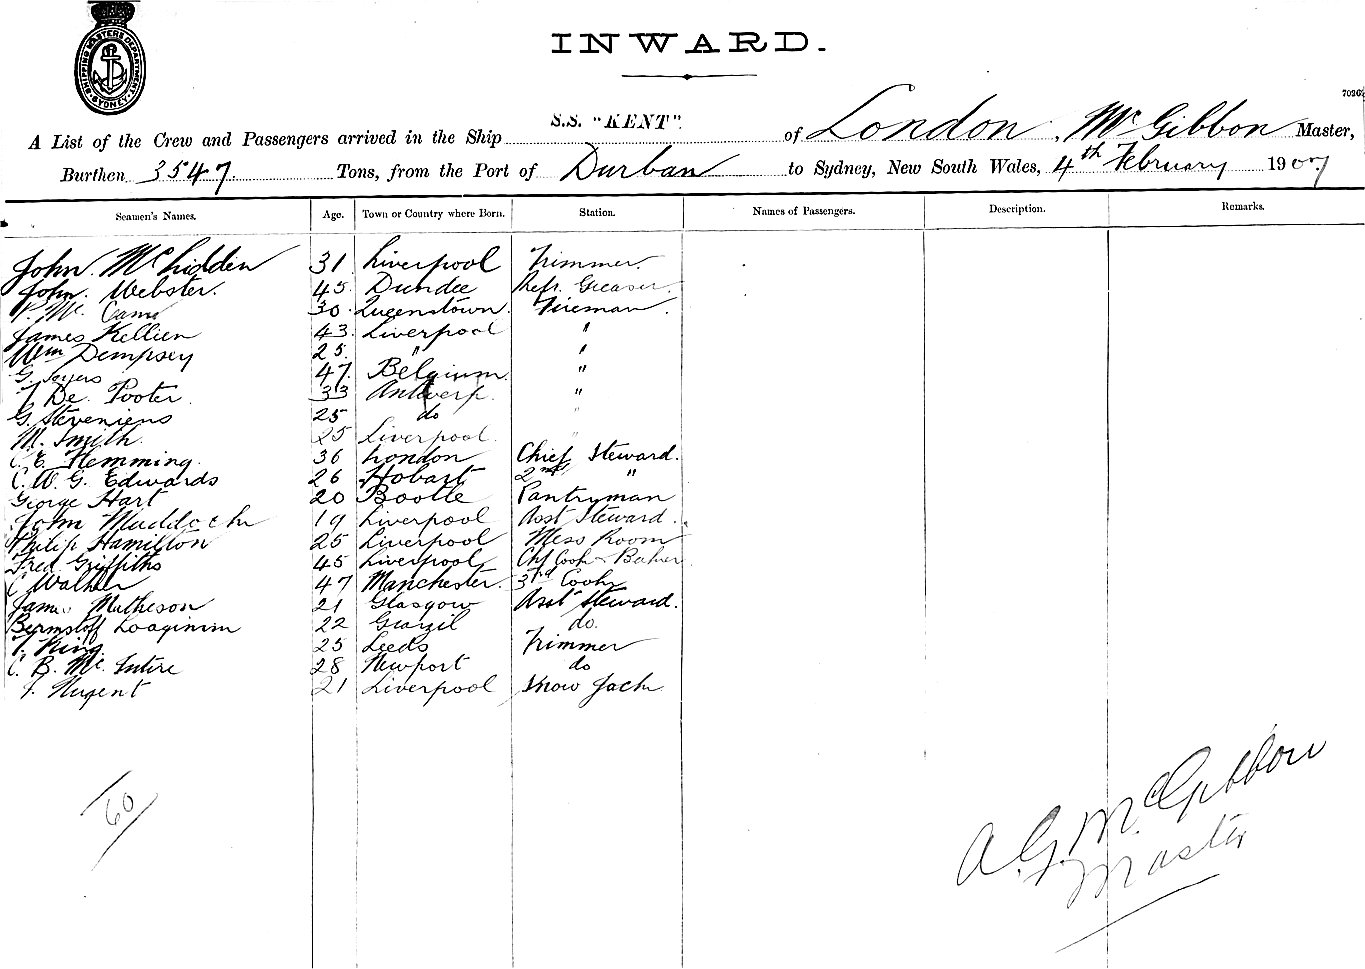 SHIPPING MASTERS DEPARTMENT SYDNEY
INWARD.
7026
A List of the Crew and Passengers arrived in the Ship S.S. "KENT". of London, McGibbon Master,
Burthen 3547 Tons, from the Port of Durban to Sydney, New South Wales, 4th February 1907
Seamen's Names. Age. Town or Country where Born. Station. Names of Passengers. Description. Remarks.
John McLidden 31 Liverpool Trimmer.
John Webster. 45 Dundee Refr. Greaser.
P. Mc Cann 30 Queenstown. Fireman.
James Kellien 43 Liverpool "
Wm Dempsey 25. " "
G. 47 Belgium. "
De Pooter. 33 Antwerp. "
G. Steveniens 25 do "
M. Smith. 25 Liverpool. "
C. E. Flemming. 36 London Chief Steward.
C. W. G. Edwards 26 Hobart 2nd "
George Hart 20 Bootle Pantryman
John Muddoch 19 Liverpool Asst Steward.
Philip Hamilton 25 Liverpool Mess Room
Fred. Griffiths 45 Liverpool Chf Cook & Baker
C Walker 47 Manchester. 3rd Cook
James Matheson 21 Glasgow Asst Steward.
22 do.
T. King 25 Leeds Trimmer
C. B. Mc Intire 28 Newport do
Nugent 21 Liverpool Snow Jack
60
A. G. McGibbon
Master